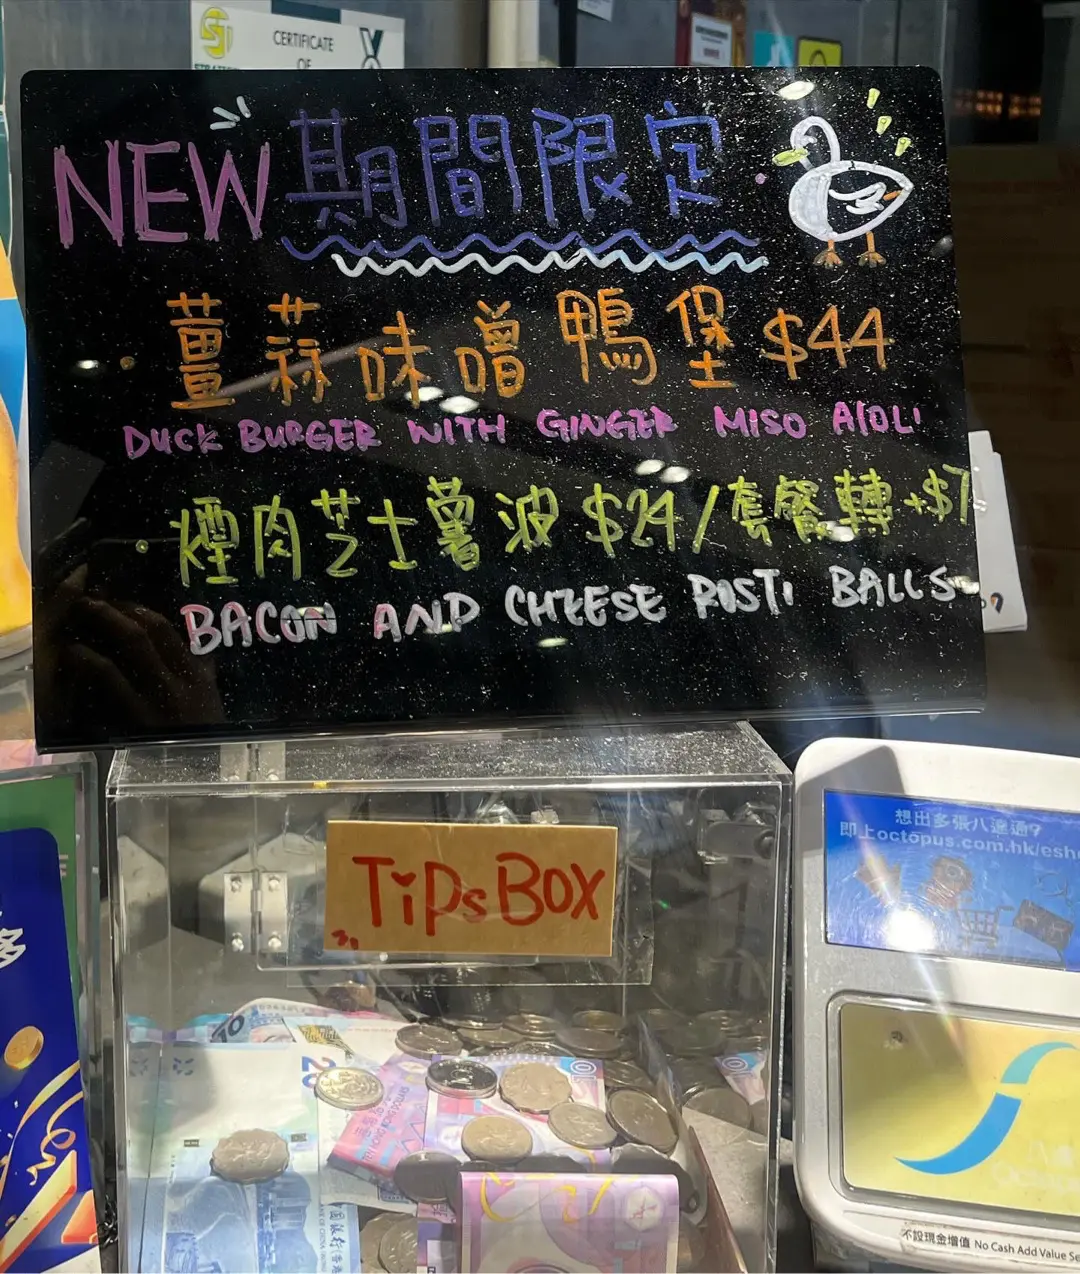 CERTIFICATE
OF
NEW 期間限定
・薑蒜味噌鴨堡 $44
DUCK BURGER WITH GINGER MISO AIOLI
・煙肉芝士薯波 $24/套餐轉+$7
BACON AND CHEESE ROSTI BALLS
TiPs BOX
想出多張八達通?
即上octopus.com.hk/esh
20
10
不設現金增值 No Cash Add Value Se